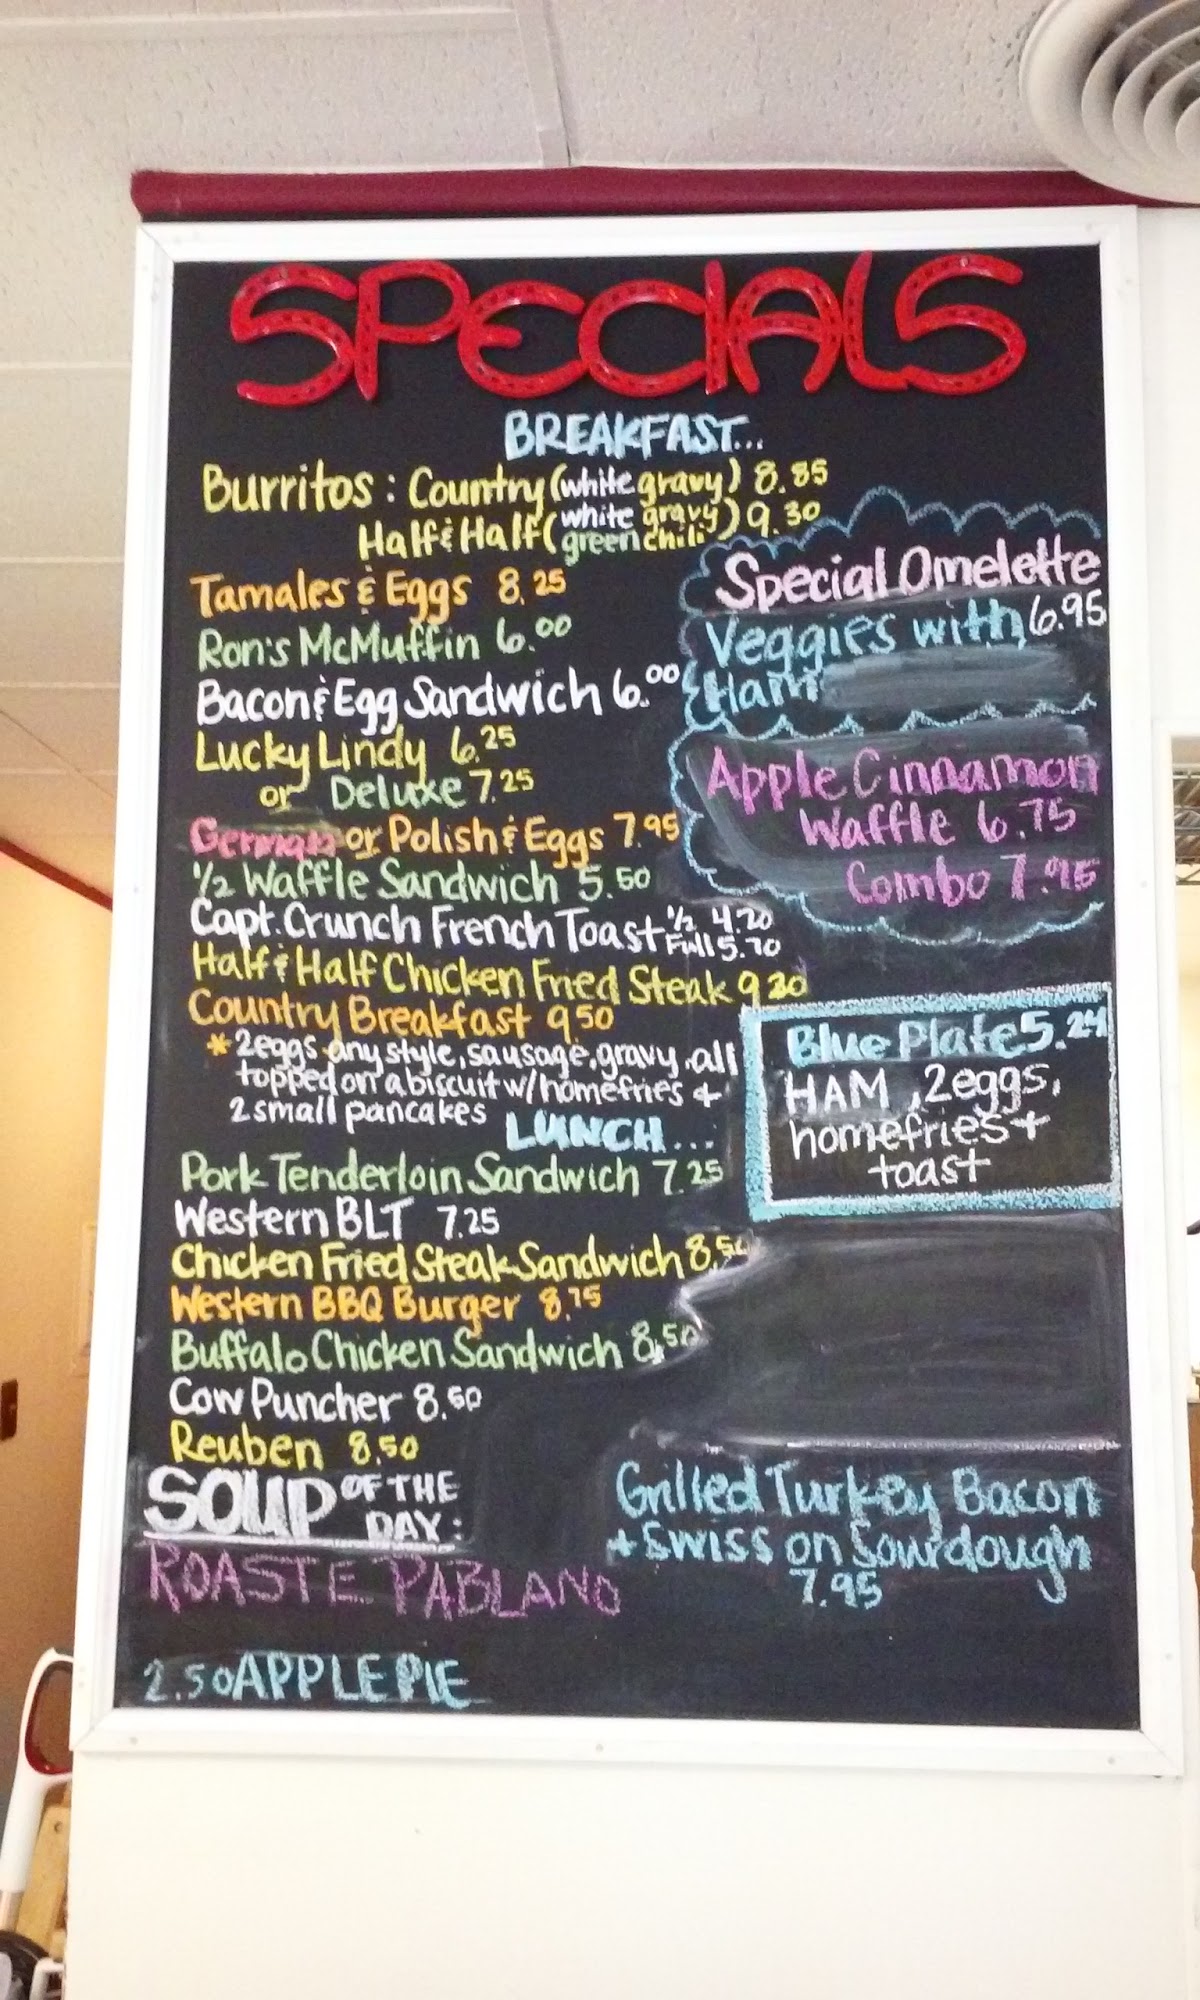 SPECIALS
BREAKFAST...
Burritos : Country (white gravy) 8.85
Half & Half (white gravy green chili) 9.30
Tamales & Eggs 8.25
Ron's McMuffin 6.00
Bacon & Egg Sandwich 6.00
Lucky Lindy 6.25
or Deluxe 7.25
German or Polish & Eggs 7.95
1/2 Waffle Sandwich 5.50
Capt. Crunch French Toast 1/2 4.20
Full 5.70
Half & Half Chicken Fried Steak 9.30
Country Breakfast 9.50
*2eggs any style, sausage, gravy, all
topped on a biscuit w/ homefries +
2 small pancakes
LUNCH...
Pork Tenderloin Sandwich 7.25
Western BLT 7.25
Chicken Fried Steak Sandwich 8.50
Western BBQ Burger 8.75
Buffalo Chicken Sandwich 8.50
Cow Puncher 8.50
Reuben 8.50
SOUP OF THE
DAY:
ROASTE PABLANO
2.50 APPLE PIE
Special Omelette
6.95
Veggies with
Ham
Apple Cinnamon
Waffle 6.75
Combo 7.95
Blue Plate 5.24
HAM, 2eggs,
homefries +
toast
Grilled Turkey Bacon
+ Swiss on Sourdough
7.95